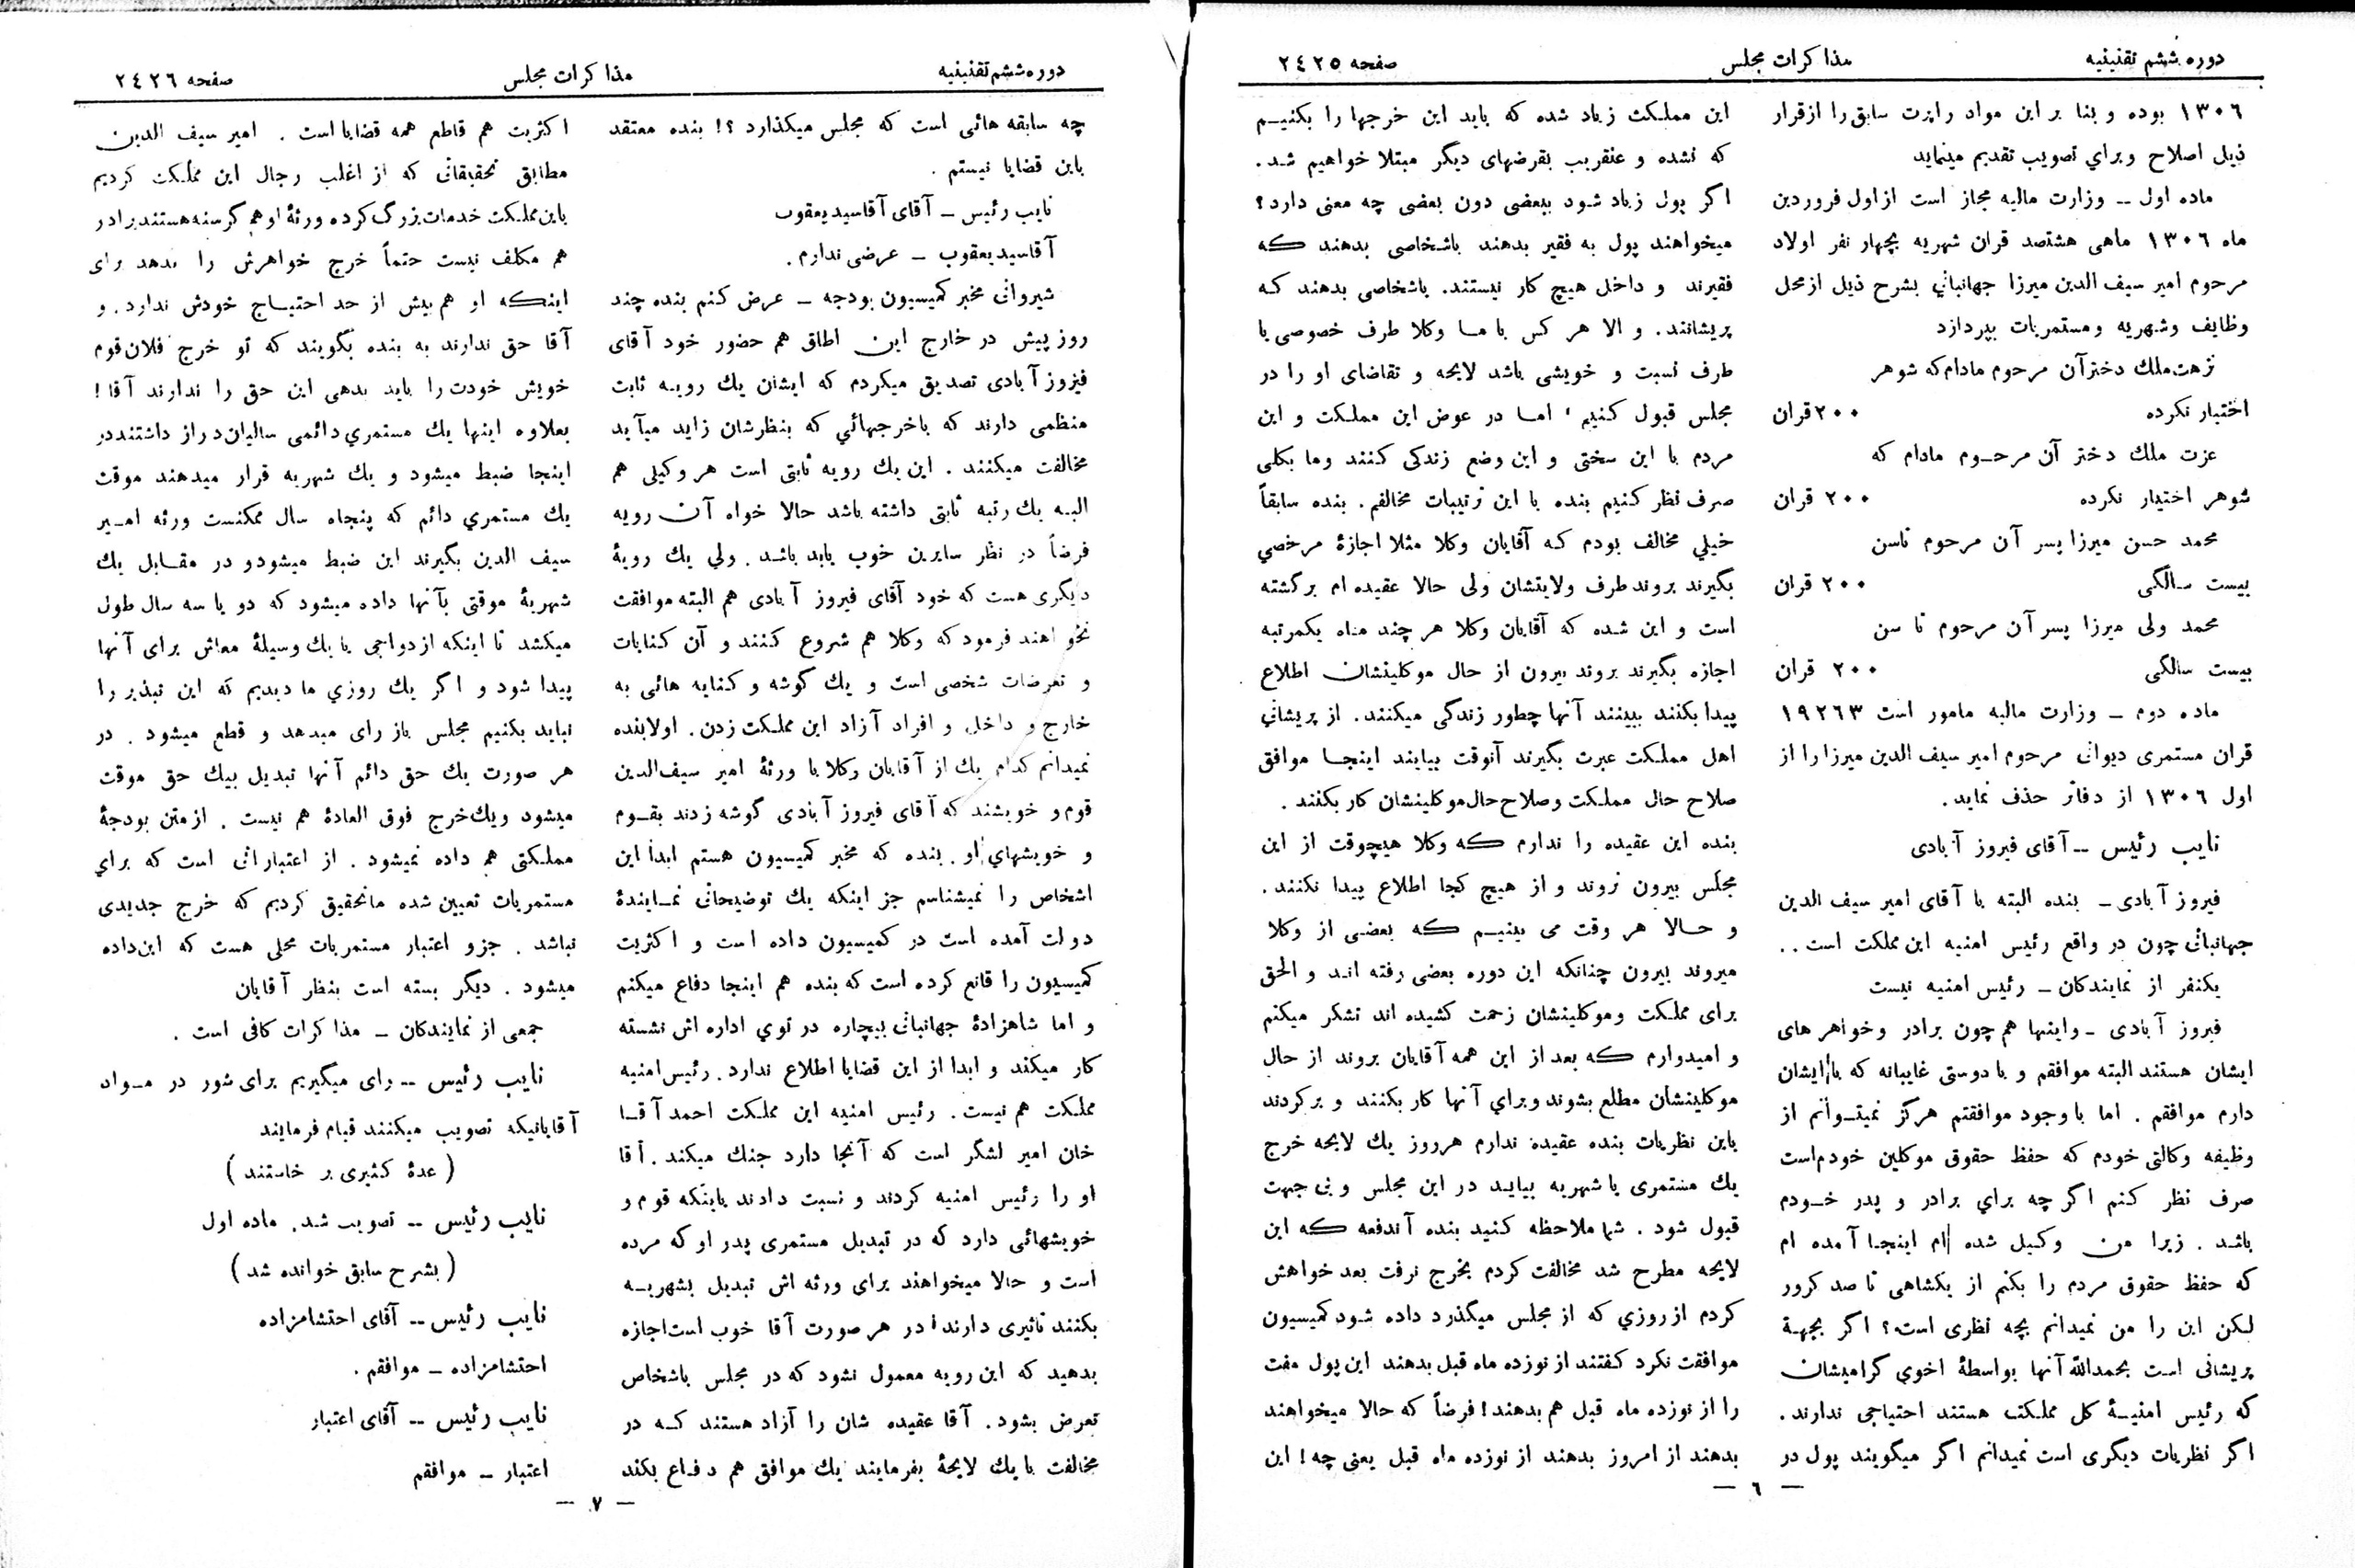 دوره ششم تقنینیه مذاکرات مجلس صفحه ۲۴۲۵
۱۳۰۶ بوده و بنا بر این مواد راپرت سابق را از قرار
ذیل اصلاح و برای تصویب تقدیم مینماید
ماده اول -- وزارت مالیه مجاز است از اول فروردین
ماه ۱۳۰۶ ماهی هشتصد قران شهریه بچهار نفر اولاد
مرحوم امیر سیف الدین میرزا جهانبانی بشرح ذیل از محل
وظایف و شهریه و مستمریات بپردازد
نزهت ملك دختر آن مرحوم مادام که شوهر
اختیار نکرده ۲۰۰ قران
عزت ملك دختر آن مرحوم مادام که
شوهر اختیار نکرده ۲۰۰ قران
محمد حسن میرزا پسر آن مرحوم تا سن
بیست سالگی ۲۰۰ قران
محمد ولی میرزا پسر آن مرحوم تا سن
بیست سالگی ۲۰۰ قران
ماده دوم – وزارت مالیه مامور است ۱۹۲۶۳
قران مستمری دیوانی مرحوم امیر سیف الدین میرزا را از
اول ۱۳۰۶ از دفاتر حذف نماید.
نایب رئیس -- آقای فیروز آبادی
فیروز آبادی – بنده البته با آقای امیر سیف الدین
جهانبانی چون در واقع رئیس امنیه این مملکت است..
یکنفر از نمایندگان – رئیس امنیه نیست
فیروز آبادی - و اینها هم چون برادر و خواهر های
ایشان هستند البته موافقم و با دوستی غایبانه که با ایشان
دارم موافقم . اما با وجود موافقتم هرگز نمیتوانم از
وظیفه وکالتی خودم که حفظ حقوق موکلین خودم است
صرف نظر کنم اگر چه برای برادر و پدر خودم
باشد . زیرا من وکیل شده ام اینجا آمده ام
که حفظ حقوق مردم را بکنم از یکشاهی تا صد کرور
لکن این را من نمیدانم بچه نظری است؟ اگر بجهة
پریشانی است بحمدالله آنها بواسطهٔ اخوی گرامیشان
که رئیس امنیهٔ کل مملکت هستند احتیاجی ندارند.
اگر نظریات دیگری است نمیدانم اگر میگویند پول در
این مملکت زیاد شده که باید این خرجها را بکنیم
که نشده و عنقریب بقرضهای دیگر مبتلا خواهیم شد.
اگر پول زیاد شود ببعضی دون بعضی چه معنی دارد؟
میخواهند پول به فقیر بدهند باشخاصی بدهند که
فقیرند و داخل هیچ کار نیستند. باشخاصی بدهند که
پریشانند. و الا هر کس با ما وکلا طرف خصوصی یا
طرف نسبت و خویشی باشد لایحه و تقاضای او را در
مجلس قبول کنیم ، اما در عوض این مملکت و این
مردم با این سختی و این وضع زندگی کنند وما بکلی
صرف نظر کنیم بنده با این ترتیبات مخالفم. بنده سابقاً
خیلی مخالف بودم که آقایان وکلا مثلا اجازهٔ مرخصی
بگیرند بروند طرف ولایتشان ولی حالا عقیده ام برگشته
است و این شده که آقایان وکلا هر چند ماه یکمرتبه
اجازه بگیرند بروند بیرون از حال موکلینشان اطلاع
پیدا بکنند ببینند آنها چطور زندگی میکنند. از پریشانی
اهل مملکت عبرت بگیرند آنوقت بیایند اینجا موافق
صلاح حال مملکت و صلاح حال موکلینشان کار بکنند .
بنده این عقیده را ندارم که وکلا هیچوقت از این
مجلس بیرون نروند و از هیچ کجا اطلاع پیدا نکنند.
و حالا هر وقت می بینیم که بعضی از وکلا
میروند بیرون چنانکه این دوره بعضی رفته اند و الحق
برای مملکت وموکلینشان زحمت کشیده اند تشکر میکنم
و امیدوارم که بعد از این همه آقایان بروند از حال
موکلینشان مطلع بشوند وبرای آنها کار بکنند و برگردند
باین نظریات بنده عقیده ندارم هرروز یك لایحه خرج
یك مستمری یا شهریه بیاید در این مجلس و بی جهت
قبول شود . شما ملاحظه کنید بنده آندفعه که این
لایحه مطرح شد مخالفت کردم بخرج نرفت بعد خواهش
کردم از روزی که از مجلس میگذرد داده شود کمیسیون
موافقت نکرد گفتند از نوزده ماه قبل بدهند این پول مفت
را از نوزده ماه قبل هم بدهند! فرضاً که حالا میخواهند
بدهند از امروز بدهند از نوزده ماه قبل یعنی چه! این
— ٦ —
دوره ششم تقنینیه مذاکرات مجلس صفحه ۲۴۲۶
چه سابقه هائی است که مجلس میگذارد ؟! بنده معتقد
باین قضایا نیستم .
نایب رئیس – آقای آقاسید یعقوب
آقاسید یعقوب – عرضی ندارم.
شیروانی مخبر کمیسیون بودجه – عرض کنم بنده چند
روز پیش در خارج این اطاق هم حضور خود آقای
فیروز آبادی تصدیق میکردم که ایشان یك رویه ثابت
منظمی دارند که باخرجهائی که بنظرشان زاید میآید
مخالفت میکنند . این یك رویه ثابتی است هر وکیلی هم
البه یك رتبه ثابتی داشته باشد حالا خواه آن رویه
فرضاً در نظر سایرین خوب یابد باشد. ولی یك رویهٔ
دیگری هست که خود آقای فیروز آبادی هم البته موافقت
نخواهند فرمود که وکلا هم شروع کنند و آن کنایات
و تعرضات شخصی است و یك گوشه و کنایه هائی به
خارج و داخل و افراد آزاد این مملکت زدن. اولا بنده
نمیدانم کدام یك از آقایان وکلا با ورثهٔ امیر سیف الدین
قوم و خویشند که آقای فیروز آبادی گوشه زدند بقوم
و خویشهای او. بنده که مخبر کمیسیون هستم ابداً این
اشخاص را نمیشناسم جز اینکه یك توضیحاتی نمایندهٔ
دولت آمده است در کمیسیون داده است و اکثریت
کمیسیون را قانع کرده است که بنده هم اینجا دفاع میکنم
و اما شاهزادهٔ جهانبانی بیچاره در توی اداره اش نشسته
کار میکند و ابدا از این قضایا اطلاع ندارد. رئیس امنیه
مملکت هم نیست. رئیس امنیه این مملکت احمد آقا
خان امیر لشگر است که آنجا دارد جنك میکند. آقا
او را رئیس امنیه کردند و نسبت دادند باینکه قوم و
خویشهائی دارد که در تبدیل مستمری پدر او که مرده
است و حالا میخواهند برای ورثه اش تبدیل بشهریه
بکنند تاثیری دارند! در هر صورت آقا خوب است اجازه
بدهید که این رویه معمول نشود که در مجلس باشخاص
تعرض بشود. آقا عقیده شان را آزاد هستند که در
مخالفت با یك لایحهٔ بفرمایند یك موافق هم دفاع بکند
اکثریت هم قاطع همه قضایا است . امیر سیف الدین
مطابق تحقیقاتی که از اغلب رجال این مملکت کردیم
باین مملکت خدمات بزرگ کرده ورثهٔ او هم گرسنه هستند برادر
هم مکلف نیست حتماً خرج خواهرش را بدهد برای
اینکه او هم بیش از حد احتیاج خودش ندارد. و
آقا حق ندارند به بنده بگویند که تو خرج فلان قوم
خویش خودت را باید بدهی این حق را ندارند آقا!
بعلاوه اینها یك مستمری دائمی سالیان دراز داشتند در
اینجا ضبط میشود و یك شهریه قرار میدهند موقت
یك مستمری دائم که پنجاه سال ممکنست ورثه امیر
سیف الدین بگیرند این ضبط میشود و در مقابل یك
شهریهٔ موقتی بآنها داده میشود که دو یا سه سال طول
میکشد تا اینکه ازدواجی یا یك وسیلهٔ معاش برای آنها
پیدا شود و اگر یك روزی ما دیدیم که این تبذیر را
نباید بکنیم مجلس باز رای میدهد و قطع میشود . در
هر صورت یك حق دائم آنها تبدیل بیك حق موقت
میشود ویك خرج فوق العادهٔ هم نیست . از متن بودجهٔ
مملکتی هم داده نمیشود . از اعتباراتی است که برای
مستمریات تعیین شده ما تحقیق کردیم که خرج جدیدی
نباشد . جزو اعتبار مستمریات محلی هست که این داده
میشود . دیگر بسته است بنظر آقایان
جمعی از نمایندگان – مذاکرات کافی است .
نایب رئیس -- رای میگیریم برای شور در مواد
آقایانیکه تصویب میکنند قیام فرمایند
(عدهٔ کثیری بر خاستند)
نایب رئیس -- تصویب شد. ماده اول
(بشرح سابق خوانده شد)
نایب رئیس -- آقای احتشامزاده
احتشامزاده – موافقم.
نایب رئیس -- آقای اعتبار
اعتبار – موافقم
— ۷ —